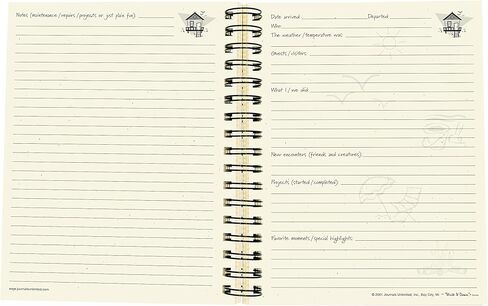 Notes (maintenance/repairs/projects or just plain fun)
www.journalsunlimited.com
Date arrived Departed
Who
The weather/temperature was
Guests/visitors
What I/we did
New encounters (friends and creatures)
Projects (started/completed)
Favorite moments/special highlights
© 2001 Journals Unlimited, Inc., Bay City, MI ~ "Write it Down" ~